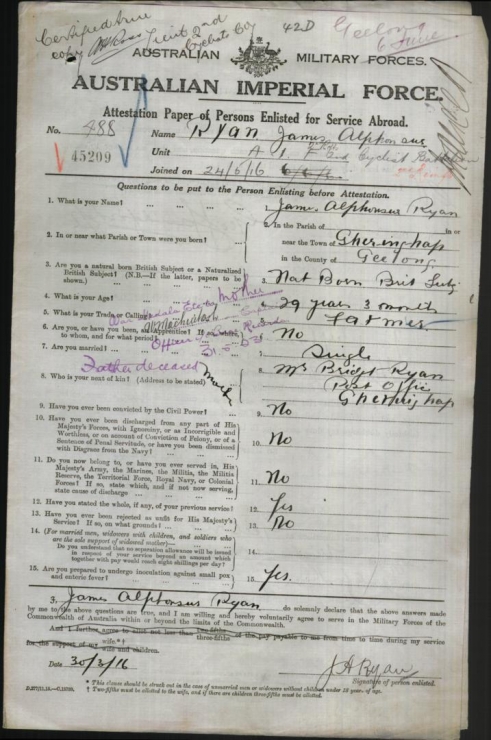 Certified true
copy Lieut 2nd
Cyclist 42D
Geelong
AUSTRALIAN MILITARY FORCES.
AUSTRALIAN IMPERIAL FORCE.
Attestation Paper of Persons Enlisted for Service Abroad.
No. 488 Name Ryan James Alphonsus
45209 Unit Cyclist
Joined on 24/5/16
Questions to be put to the Person Enlisting before Attestation.
1. What is your Name? 1. James Alphonsus Ryan
2. In or near what Parish or Town were you born? 2. In the Parish of in or
near the Town of Gheringhap
in the County of Geelong
3. Are you a natural born British Subject or a Naturalized
British Subject? (N.B.—If the latter, papers to be
shown.) 3. Nat Born Brit Subj.
4. What is your Age? 29 years 3 months
5. What is your Trade or Calling? Farmer
6. Are you, or have you been, an Apprentice? If so, where,
to whom, and for what period? No
7. Are you married? Single
Mother
Father deceased
8. Who is your next of kin? (Address to be stated) 8. Mrs Bridget Ryan
Post Office
Gheringhap
9. Have you ever been convicted by the Civil Power? 9. No
10. Have you ever been discharged from any part of His
Majesty's Forces, with Ignominy, or as Incorrigible and
Worthless, or on account of Conviction of Felony, or of a
Sentence of Penal Servitude, or have you been dismissed
with Disgrace from the Navy? 10. No
11. Do you now belong to, or have you ever served in, His
Majesty's Army, the Marines, the Militia, the Militia
Reserve, the Territorial Force, Royal Navy, or Colonial
Forces? If so, state which, and if not now serving,
state cause of discharge 11. No
12. Have you stated the whole, if any, of your previous service? 12. Yes
13. Have you ever been rejected as unfit for His Majesty's
Service? If so, on what grounds? 13. No
14. (For married men, widowers with children, and soldiers who
are the sole support of widowed mother)—
Do you understand that no separation allowance will be issued
in respect of your service beyond an amount which
together with pay would reach eight shillings per day? 14.
15. Are you prepared to undergo inoculation against small pox
and enteric fever? 15. Yes.
I, James Alphonsus Ryan do solemnly declare that the above answers made
by me to the above questions are true, and I am willing and hereby voluntarily agree to serve in the Military Forces of the
Commonwealth of Australia within or beyond the limits of the Commonwealth.
And I further agree to allot not less than two-fifths of the pay payable to me from time to time during my service
three-fifths
for the support of my wife.*†
wife and children.
Date 30/3/16 J A Ryan
Signature of person enlisted.
* This clause should be struck out in the case of unmarried men or widowers without children under 18 years of age.
† Two-fifths must be allotted to the wife, and if there are children three-fifths must be allotted.